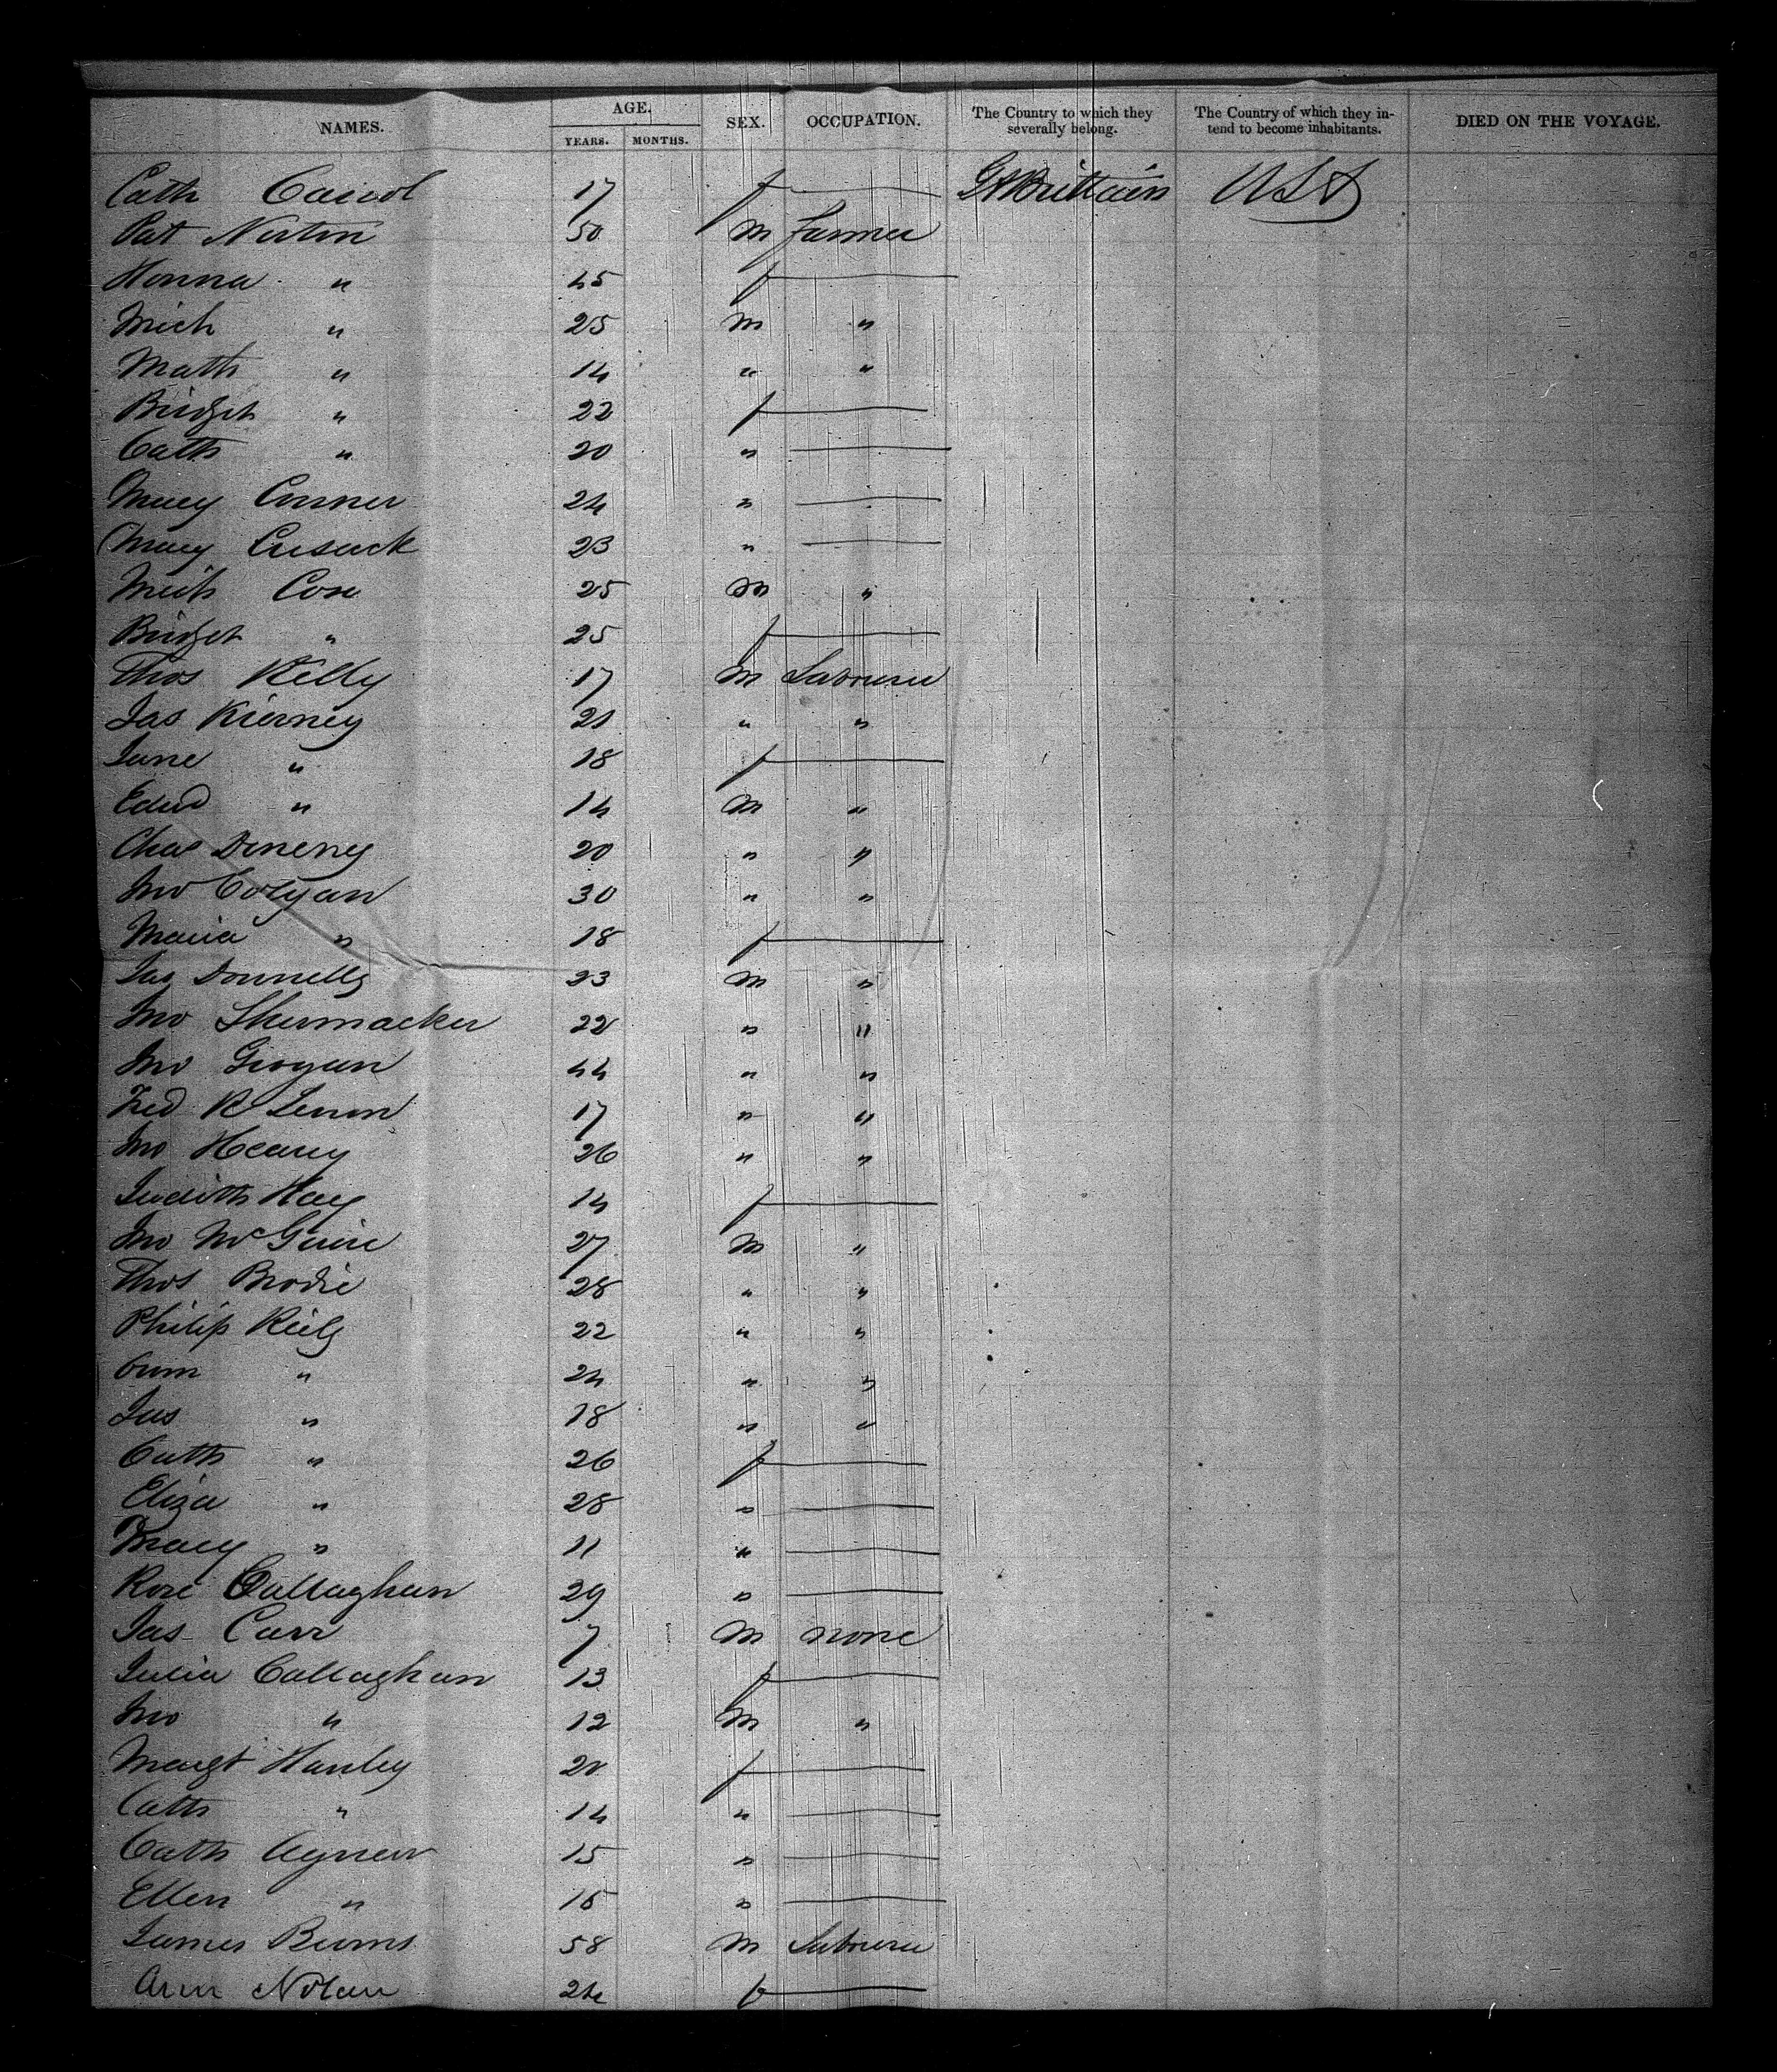 NAMES. AGE. YEARS. MONTHS. SEX. OCCUPATION. The Country to which they severally belong. The Country of which they intend to become inhabitants. DIED ON THE VOYAGE.
Cath Carrol 17 f — Gt Brittain USA
Pat Norton 50 m farmer
Honna " 45 f —
Mich " 25 m "
Math " 14 " "
Bridget " 22 f —
Cath " 20 " —
Mary Connor 24 " —
Mary Cusack 23 " —
Mich Cox 25 m "
Bridget " 25 f —
Thos Kelly 17 m Labourer
Jas Kierney 21 " "
Jane " 18 f —
Edwd " 14 m "
Chas Dineny 20 " "
Jno Colgan 30 " "
Maria " 18 f —
Jas Donnelly 23 m "
Jno Shumacker 22 " "
Jno Grogan 44 " "
Fred R Lenon 17 " "
Jno Heany 26 " "
Judith Hay 14 f —
Jno McGuire 27 m "
Thos Brodie 28 " "
Philip Reily 22 " "
" 24 " "
Jas " 18 " "
Cath " 26 f —
Eliza " 28 " —
Mary " 11 " —
Rose Callaghan 29 " —
Jas Carr 7 m none
Julia Callaghan 13 f —
Jno " 12 m "
Margt Hanley 20 f —
Cath " 14 " —
Cath Agnew 15 " —
Ellen " 16 " —
James Burns 58 m Labourer
Ann Nolan 24 f —